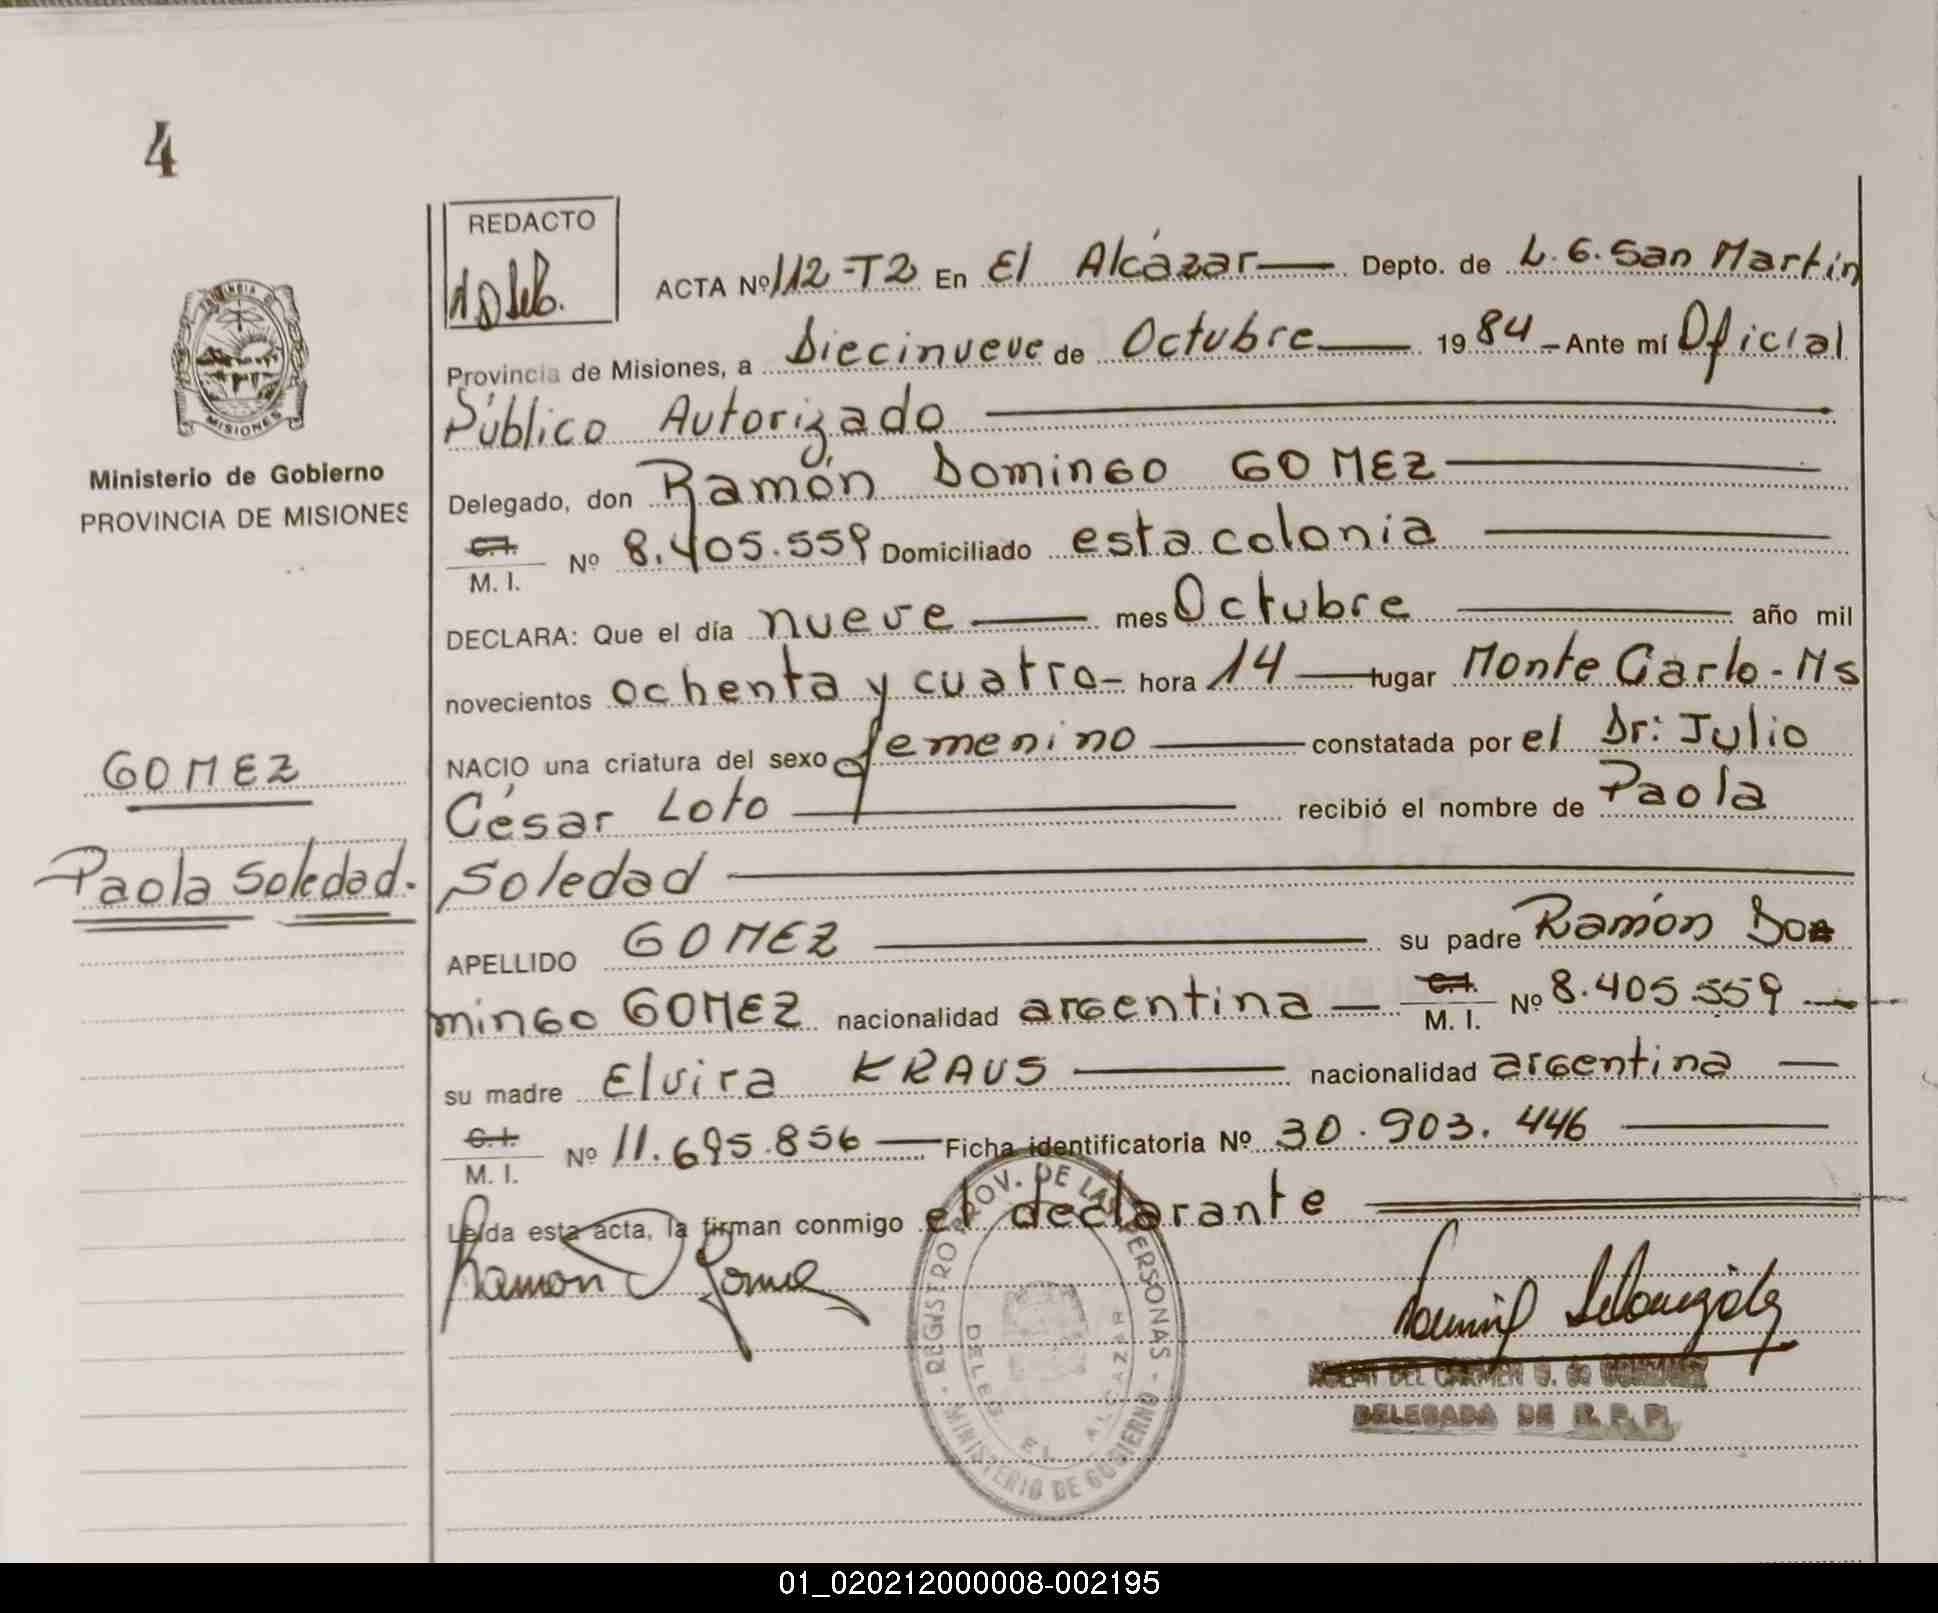 4
REDACTO
ACTA Nº 112-T2 En El Alcázar Depto. de L. G. San Martín
Provincia de Misiones, a Diecinueve de Octubre 1984 - Ante mí Oficial
Público Autorizado
Delegado, don Ramón Domingo GOMEZ
C.I.
M. I. Nº 8.405.559 Domiciliado esta colonia
DECLARA: Que el día nueve mes Octubre año mil
novecientos ochenta y cuatro - hora 14 lugar Monte Carlo - Ms
NACIO una criatura del sexo femenino constatada por el Dr: Julio
César Loto recibió el nombre de Paola
Soledad
APELLIDO GOMEZ su padre Ramón Do
mingo GOMEZ nacionalidad argentina - C.I. M. I. Nº 8.405.559
su madre Elvira KRAUS nacionalidad argentina
C.I.
M. I. Nº 11.695.856 Ficha identificatoria Nº 30.903.446
Leída esta acta, la firman conmigo el declarante
Ramon D Gomez
DEL CARMEN
DELEGADA DE R. P. P.
REGISTRO PROV. DE LAS PERSONAS - MINISTERIO DE GOBIERNO -
DELEG. EL ALCAZAR
PROVINCIA DE
MISIONES
Ministerio de Gobierno
PROVINCIA DE MISIONES
GOMEZ
Paola Soledad.
01_020212000008-002195